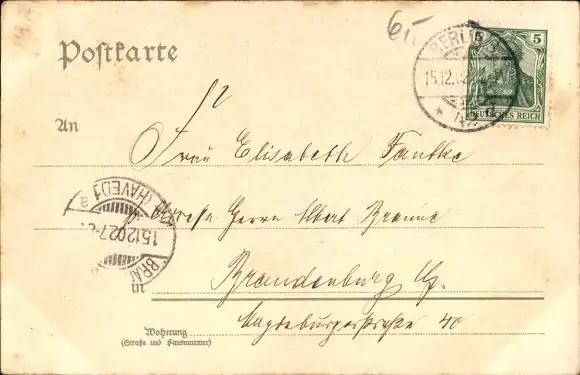 Postkarte
5
DEUTSCHES REICH
BERLIN
15.12.02
An
Frau Elisabeth Fautke
Adresse Herrn Albert Braune
BRAN (HAVEL) 1
15.12.02 7-8
a
in
Brandenburg
Magdeburgerstraße 40
Wohnung
(Straße und Hausnummer)